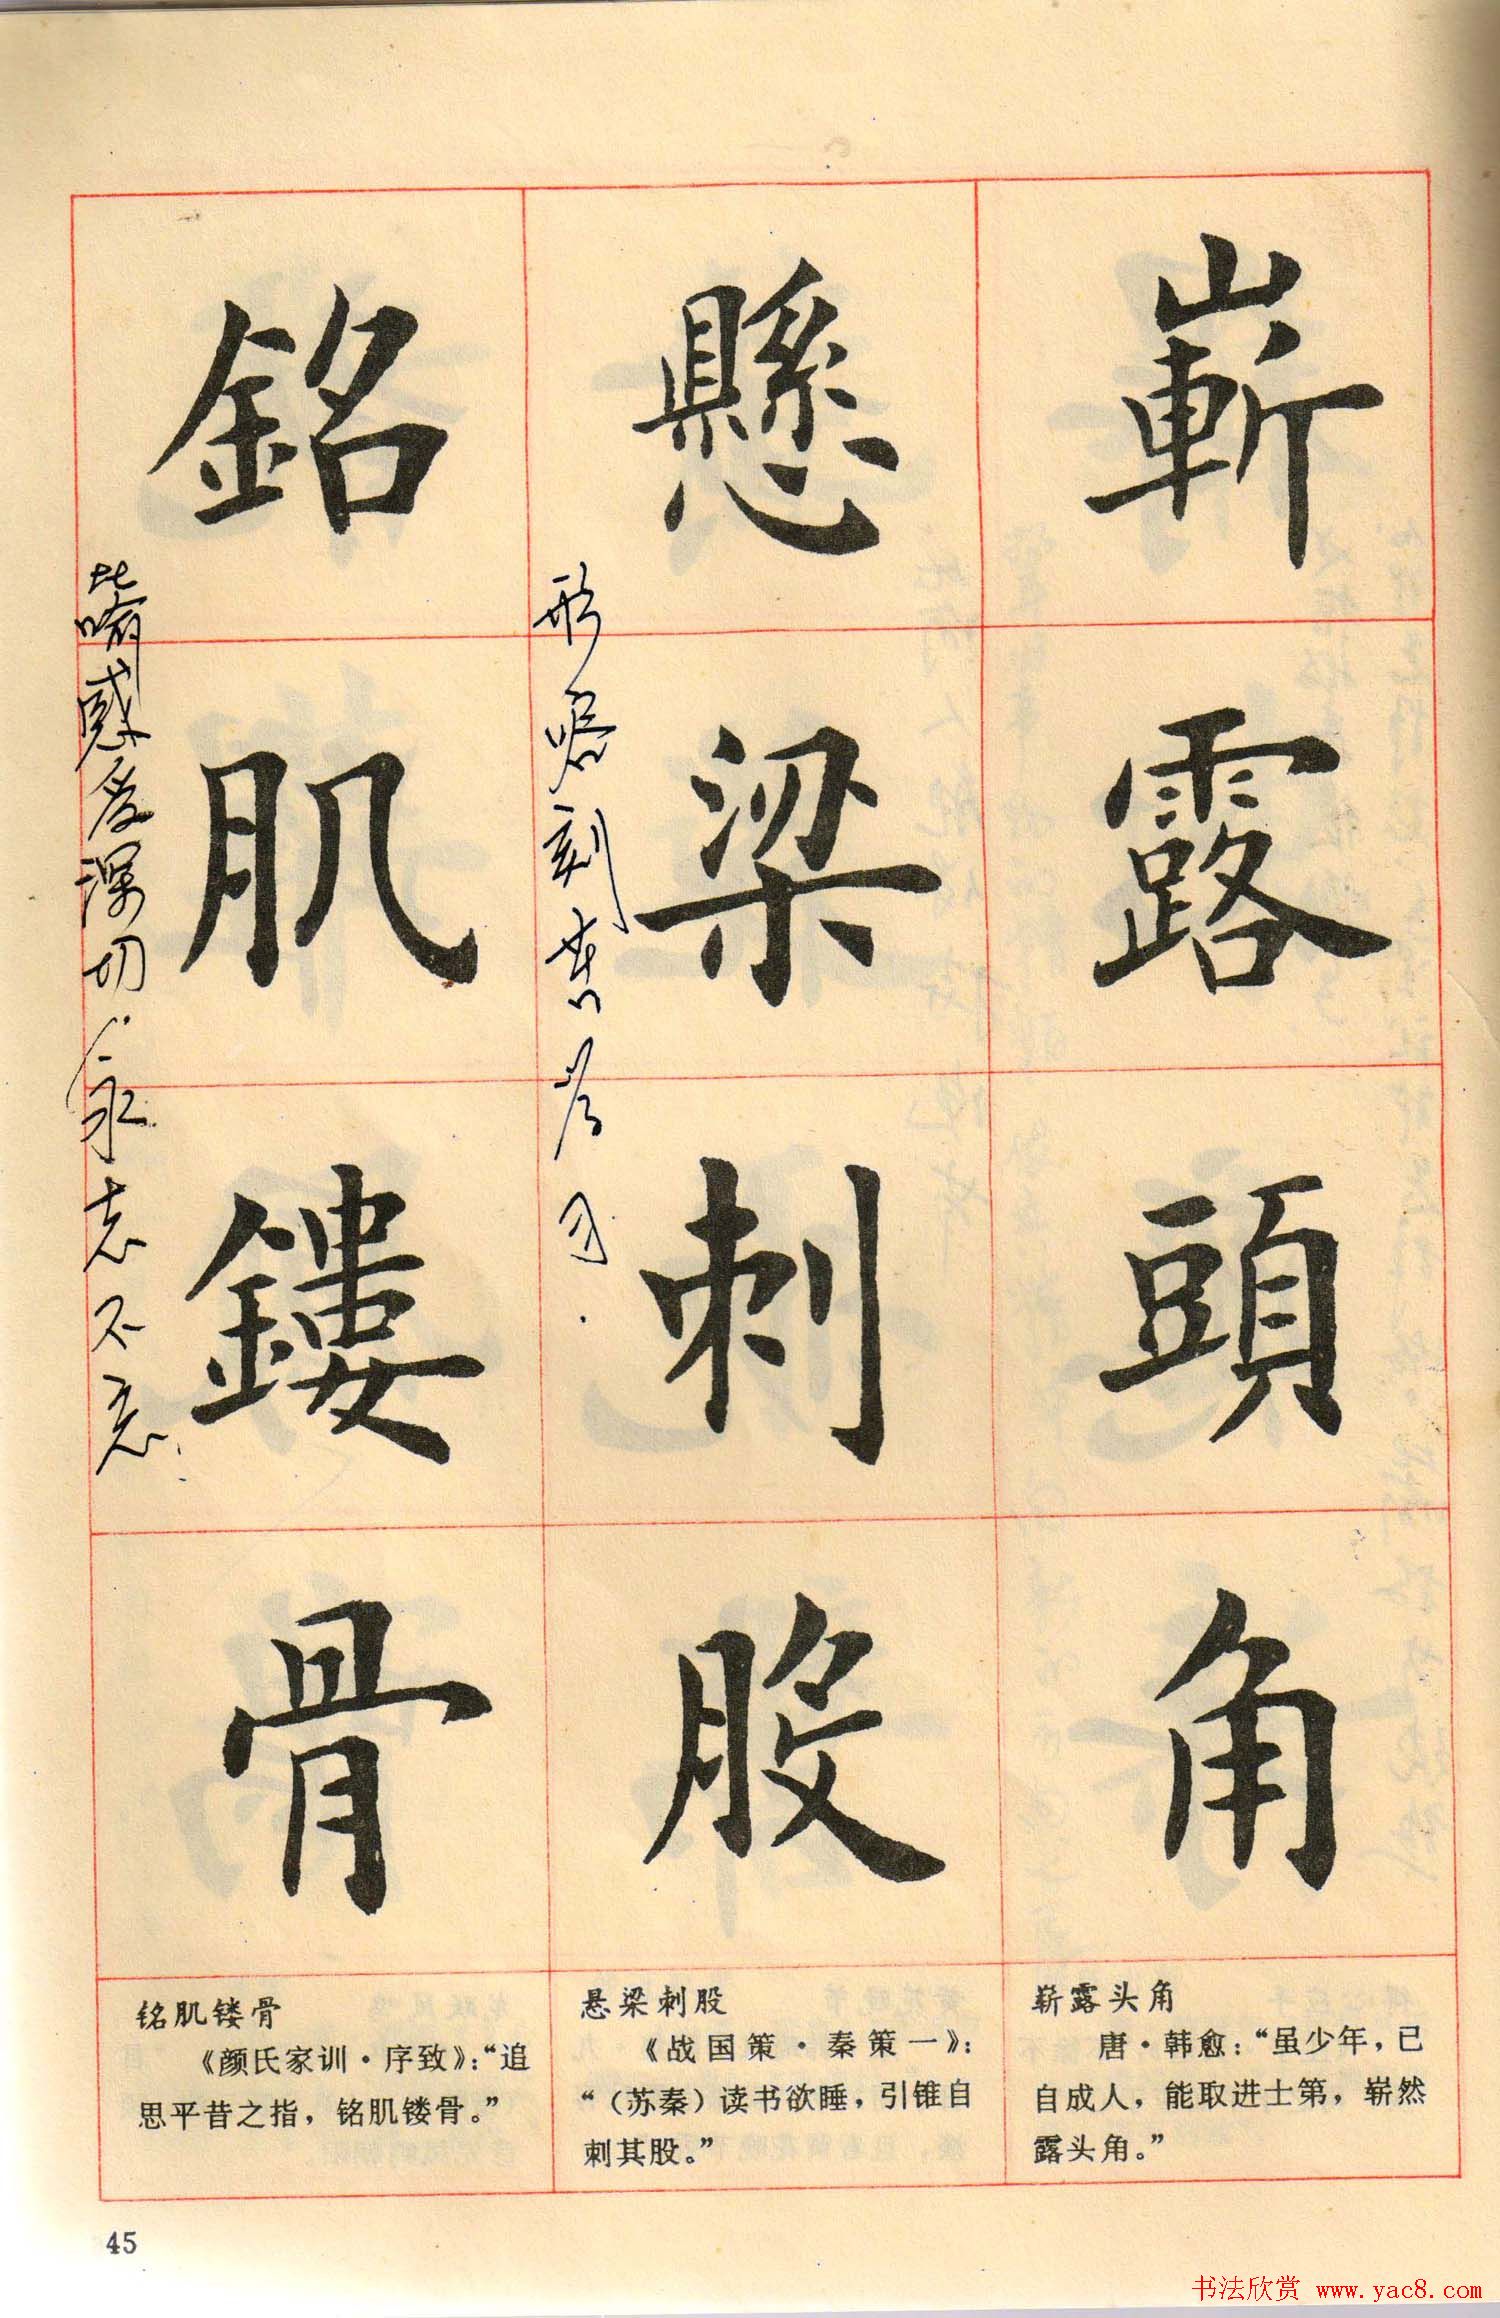 嶄露頭角
懸梁刺股
形容刻苦学习.
銘肌鏤骨
比喻感受深切,永志不忘.
崭露头角
唐·韩愈：“虽少年，已
自成人，能取进士第，崭然
露头角。”
悬梁刺股
《战国策·秦策一》：
“（苏秦）读书欲睡，引锥自
刺其股。”
铭肌镂骨
《颜氏家训·序致》：“追
思平昔之指，铭肌镂骨。”
45
书法欣赏 www.yac8.com